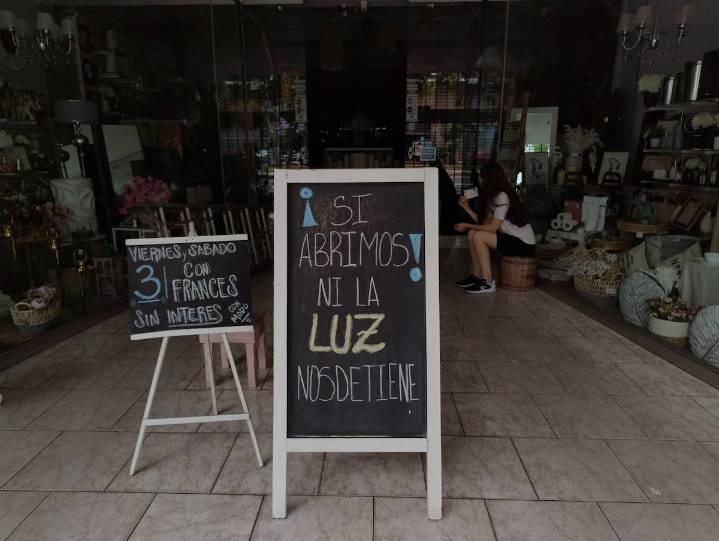 VIERNES, SABADO
3 CON
FRANCES
SIN INTERES CON
MODO
¡SI
ABRIMOS!
NI LA
LUZ
NOS DETIENE